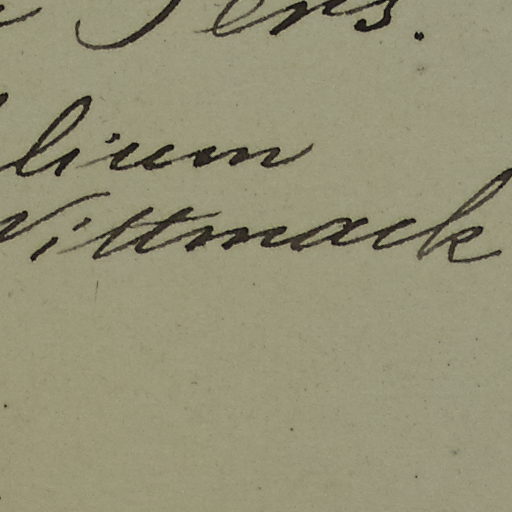 Pers.
lium
Wittmack